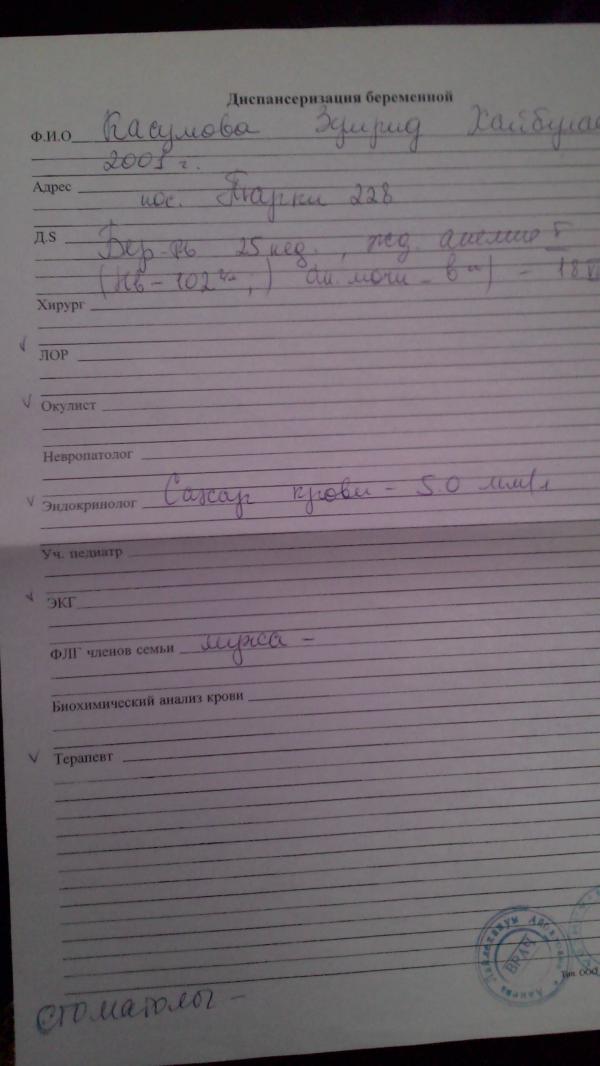 Диспансеризация беременной
Ф.И.О Касумова Зумрид Хайбулае
2001 г.
Адрес
пос. Тарки 228
Д.S Бер-ть 25 нед., жед. анемия I
(Hb - 102 г/л,) ан. мочи - в н) - 18
Хирург
ЛОР
Окулист
Невропатолог
Эндокринолог Сахар крови - 5.0 мм/л
Уч. педиатр
ЭКГ
ФЛГ членов семьи мужа -
Биохимический анализ крови
Терапевт
ВРАЧ
Тип. ООО
стоматолог -